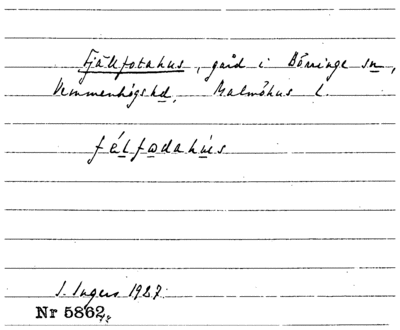 Fjälkfotahus, gård i Börringe sn,
Vemmenhögs hd, Malmöhus l.
fálfodahus
I. Ingers 1927.
Nr 5862